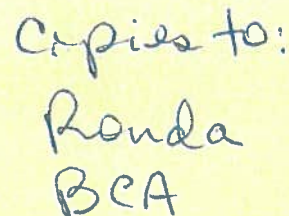 Copies to:
Ronda
BCA